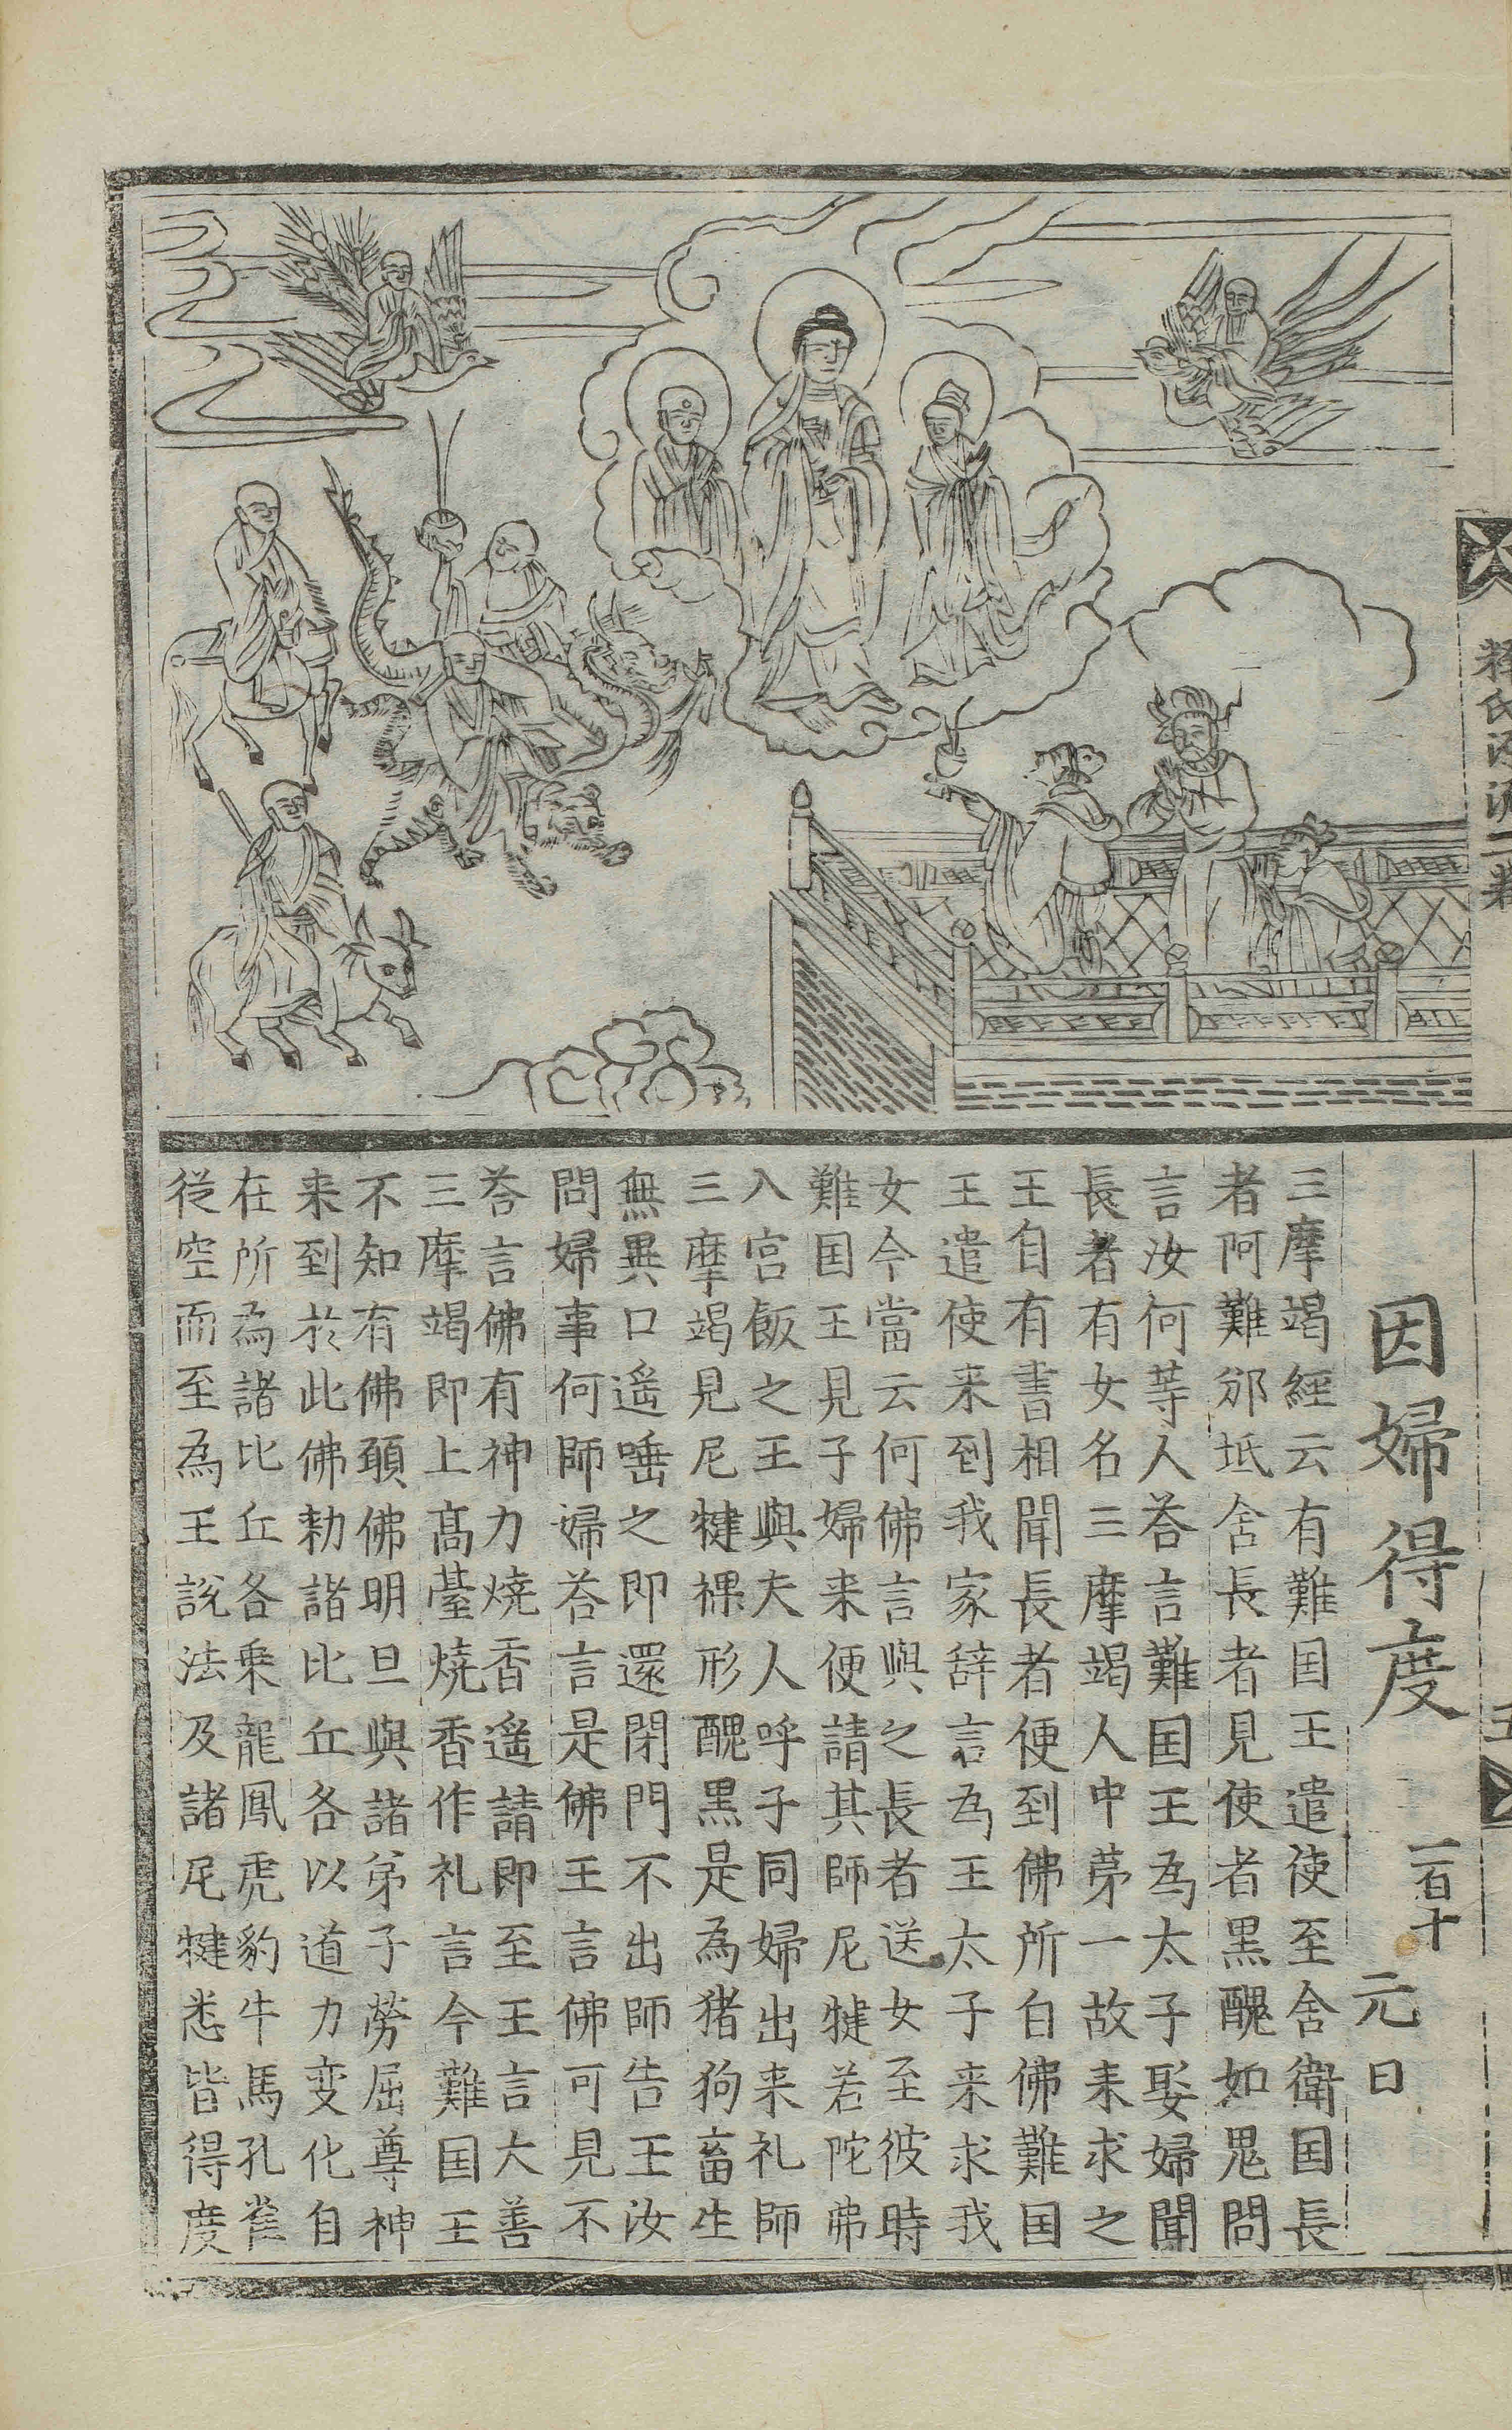 因婦得度 一百十 元日
三摩竭經云有難国王遣使至舍衛国長
者阿難邠坻舍長者見使者黒醜如鬼問
言汝何等人荅言難国王為太子娶婦聞
長者有女名三摩竭人中苐一故来求之
王自有書相聞長者便到佛所白佛難国
王遣使来到我家辞言為王太子来求我
女今當云何佛言與之長者送女至彼時
難国王見子婦来便請其師尼犍若陀弗
入宫飯之王與夫人呼子同婦出来礼師
三摩竭見尼犍裸形醜黒是為猪狗畜生
無異口遥唾之即還閉門不出師告王汝
問婦事何師婦荅言是佛王言佛可見不
荅言佛有神力燒香遥請即至王言大善
三摩竭即上髙臺燒香作礼言今難国王
不知有佛願佛明旦與諸弟子勞屈尊神
来到於此佛勑諸比丘各以道力变化自
在所為諸比丘各乗龍鳳虎豹牛馬孔雀
從空而至為王說法及諸尼犍悉皆得度